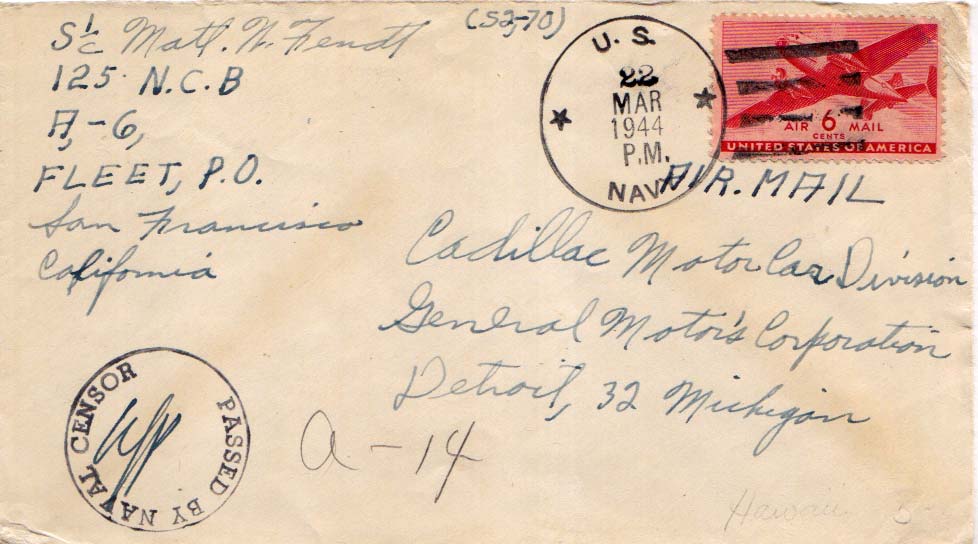 S1/c Matt. N. Fendt
(52,-70)
125 N.C.B
A-6,
FLEET, P.O.
San Francisco
California
U. S.
22
MAR
1944
P.M.
NAVY
AIR 6 MAIL
CENTS
UNITED STATES OF AMERICA
AIR. MAIL
Cadillac Motor Car Division
General Motor's Corporation
Detroit, 32 Michigan
PASSED BY NAVAL CENSOR
a - 14
Hawaii